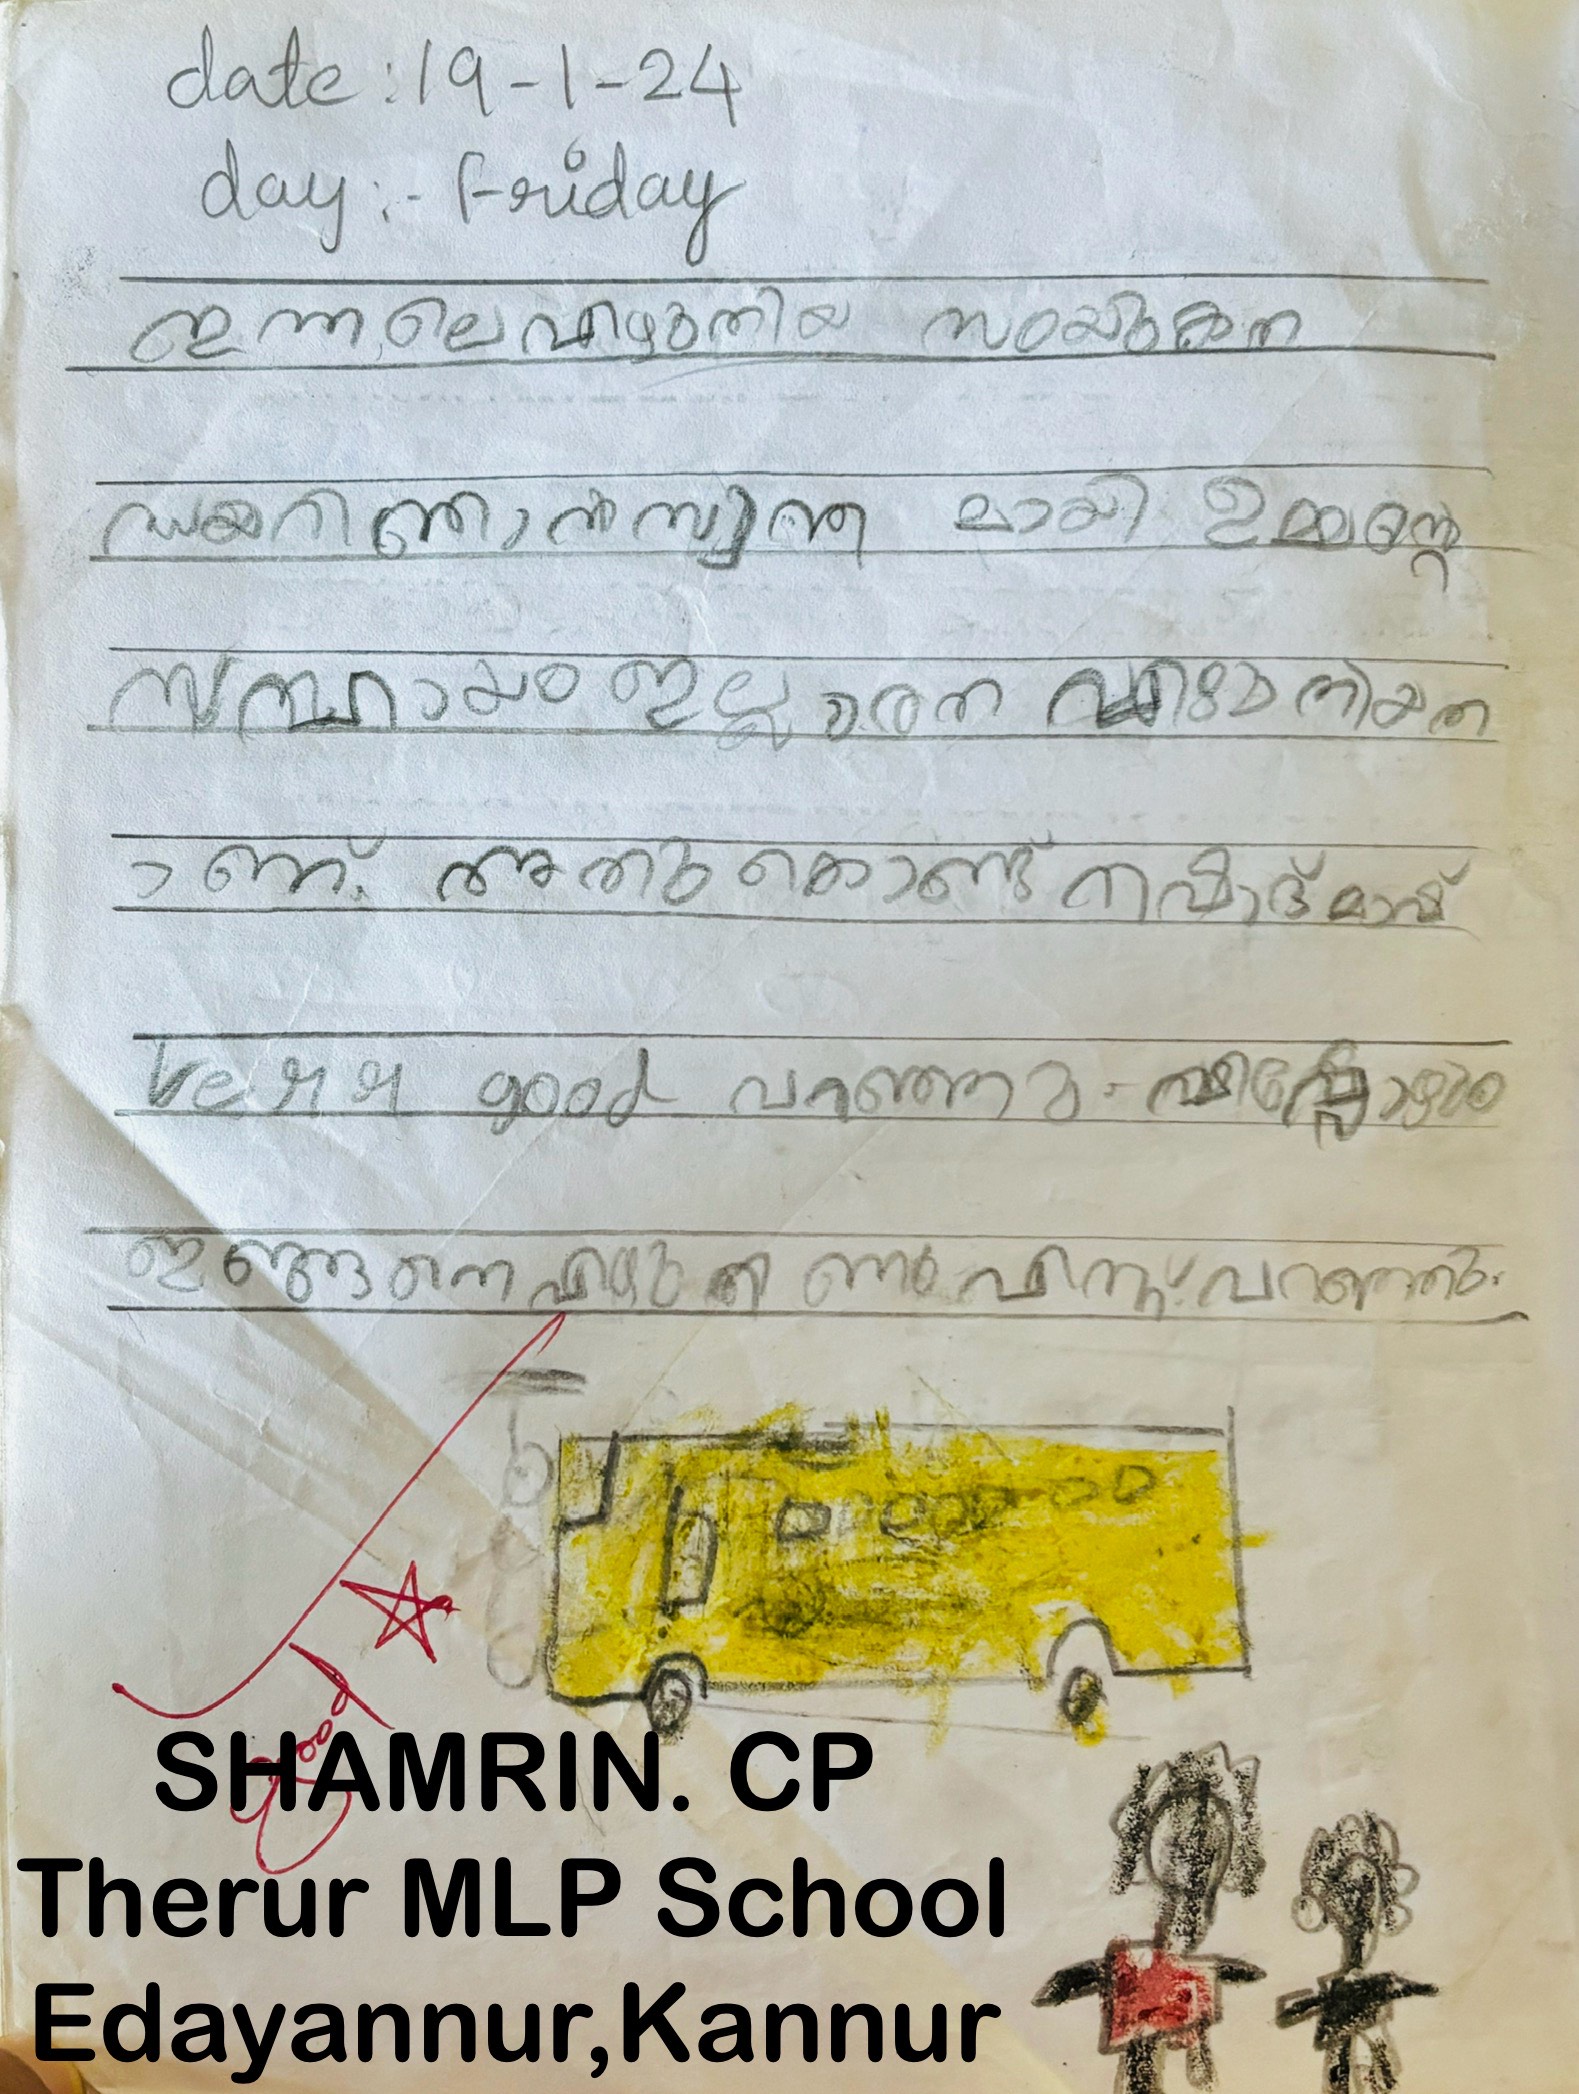 date :19-1-24
day :- Friday
ഇന്നലെ എഴുതിയ സംയുക്ത
ഡയറി ഞാൻ സ്വന്ത മായി ഉമ്മന്റെ
സഹായം ഇല്ലാതെ എഴുതിയത
ാണ്. അതുകൊണ്ട് നിഷാദ് മാഷ്
very good പറഞ്ഞു. എപ്പോഴും
ഇങ്ങനെ എഴുതണം എന്ന് പറഞ്ഞു.
Good
SHAMRIN. CP
Therur MLP School
Edayannur,Kannur